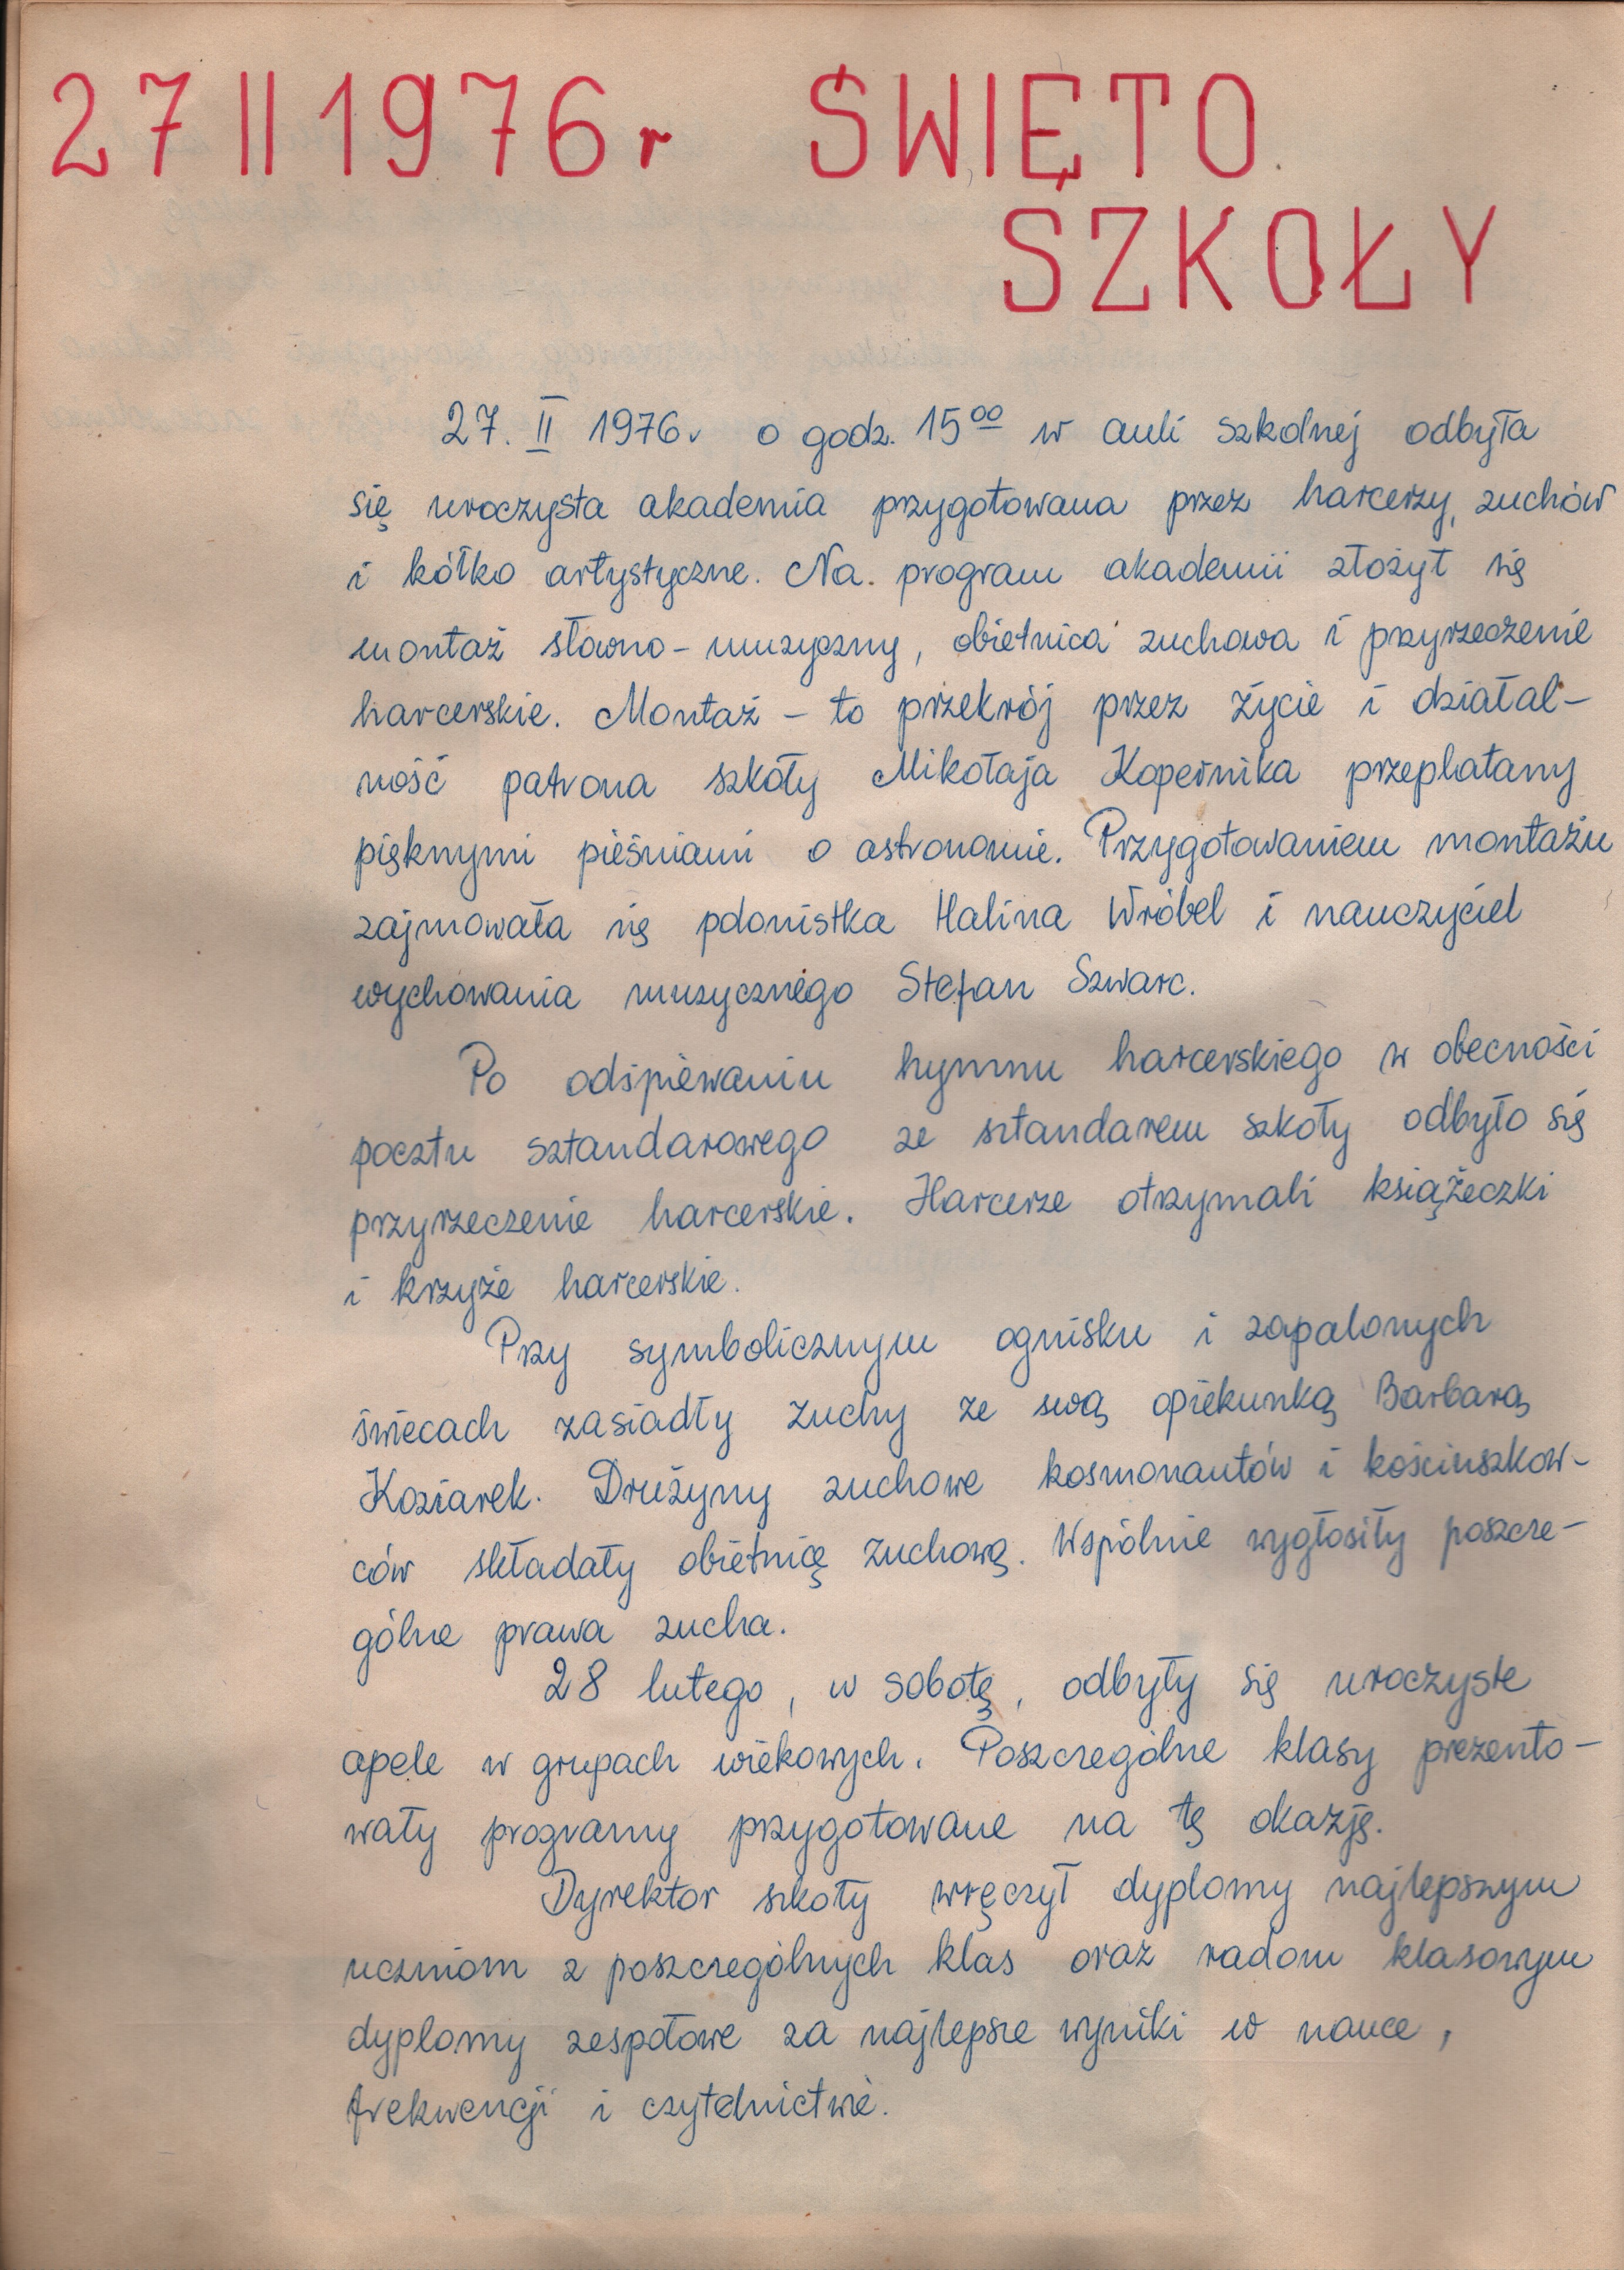 27 II 1976 r ŚWIĘTO
SZKOŁY
27. II 1976r o godz. 15⁰⁰ w auli szkolnej odbyła
się uroczysta akademia przygotowana przez harcerzy, zuchów
i kółko artystyczne. Na. program akademii złożył się
montaż słowno-muzyczny, obietnica zuchowa i przyrzeczenie
harcerskie. Montaż – to przekrój przez życie i działal-
ność patrona szkoły Mikołaja Kopernika przeplatany
pięknymi pieśniami o astronomie. Przygotowaniem montażu
zajmowała się polonistka Halina Wróbel i nauczyciel
wychowania muzycznego Stefan Szwarc.
Po odśpiewaniu hymnu harcerskiego w obecności
pocztu sztandarowego ze sztandarem szkoły odbyło się
przyrzeczenie harcerskie. Harcerze otrzymali książeczki
i krzyże harcerskie.
Przy symbolicznym ognisku i zapalonych
świecach zasiadły zuchy ze swą opiekunką Barbarą
Koziarek. Drużyny zuchowe kosmonautów i kościuszkow-
ców składały obietnicę zuchową. Wspólnie wygłosiły poszcze-
gólne prawa zucha.
28 lutego, w sobotę, odbyły się uroczyste
apele w grupach wiekowych. Poszczególne klasy prezento-
wały programy przygotowane na tę okazję.
Dyrektor szkoły wręczył dyplomy najlepszym
uczniom z poszczególnych klas oraz radom klasowym
dyplomy zespołowe za najlepsze wyniki w nauce,
frekwencji i czytelnictwie.